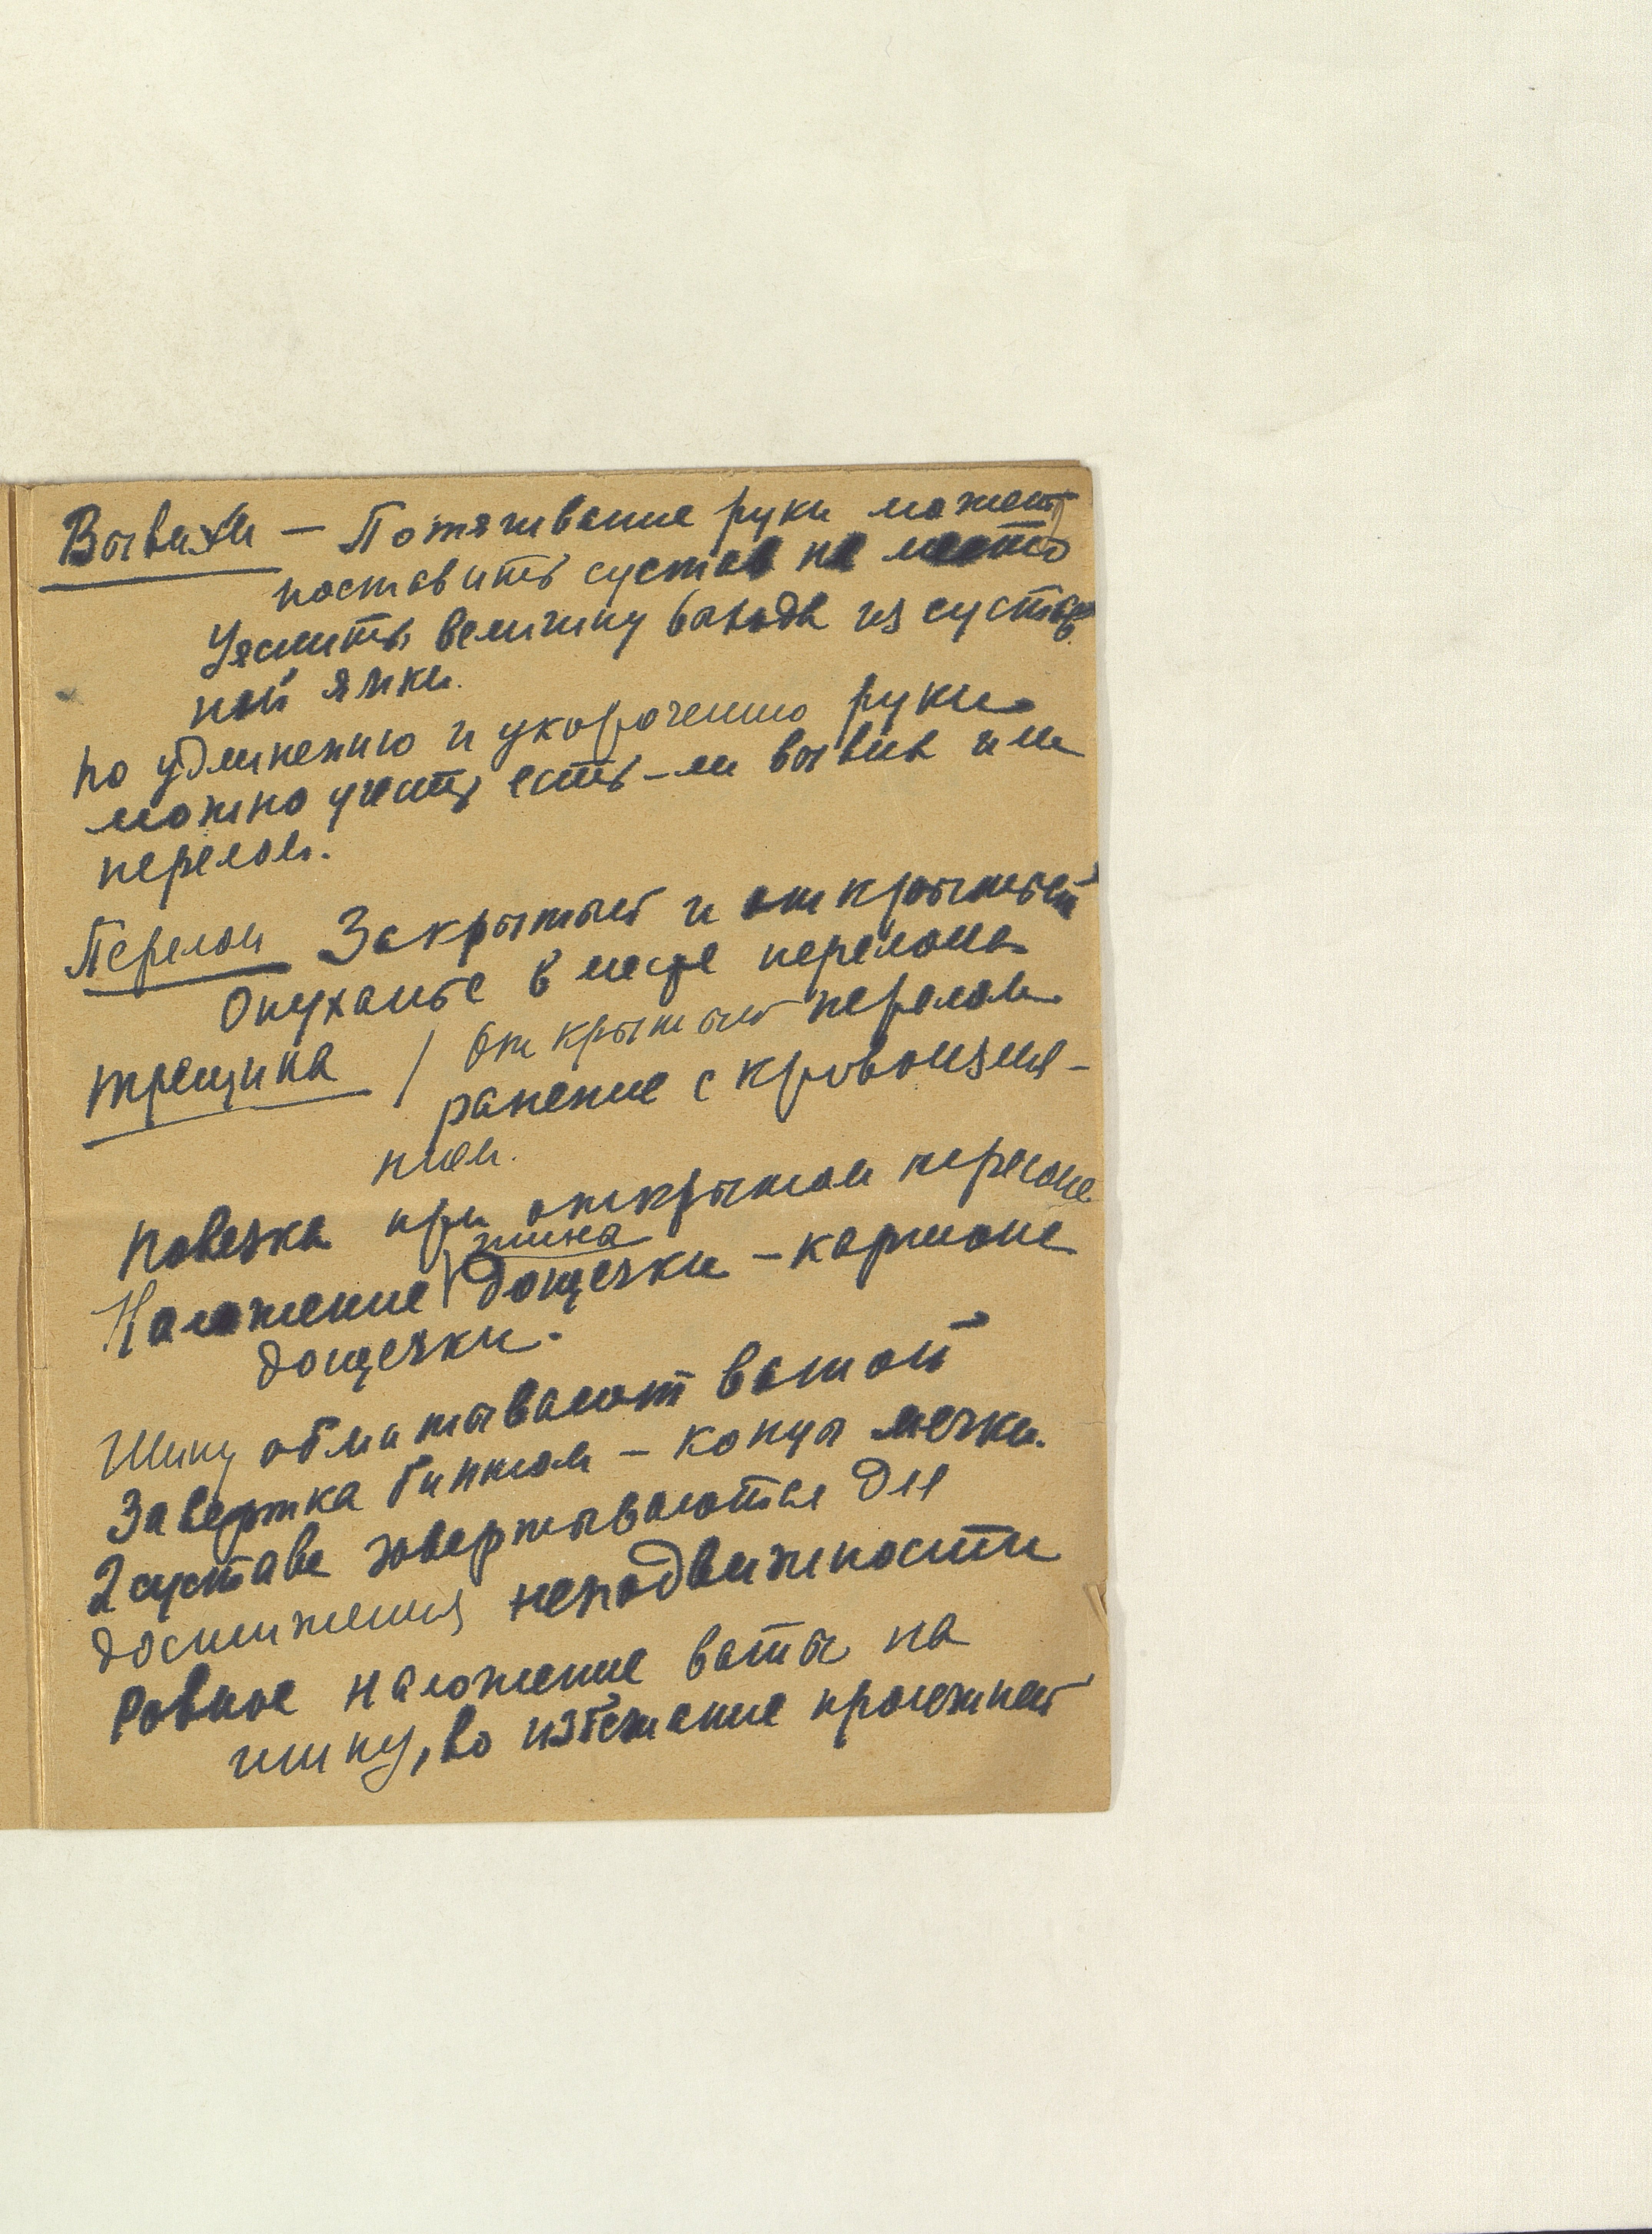 Вывихи — Потягивание руки может
поставить сустав на место
Уяснить величину выхода из сустав
ной ямки.
по удлинению и укорочению руки
можно учесть есть-ли вывих или
перелом.
Перелом Закрытый и открытый
Опуханье в месте перелома
трещина / Открытый перелом
ранение с кровоизлия-
нием.
повязка при открытом переломе
шина
Наложение дощечки - картоне
дощечки.
Шину обматывают ватой
Завертка бинтом - концы мягки.
2 сустава завертываются для
достижения неподвижности
Ровное наложение ваты на
шину, во избежание пролежней